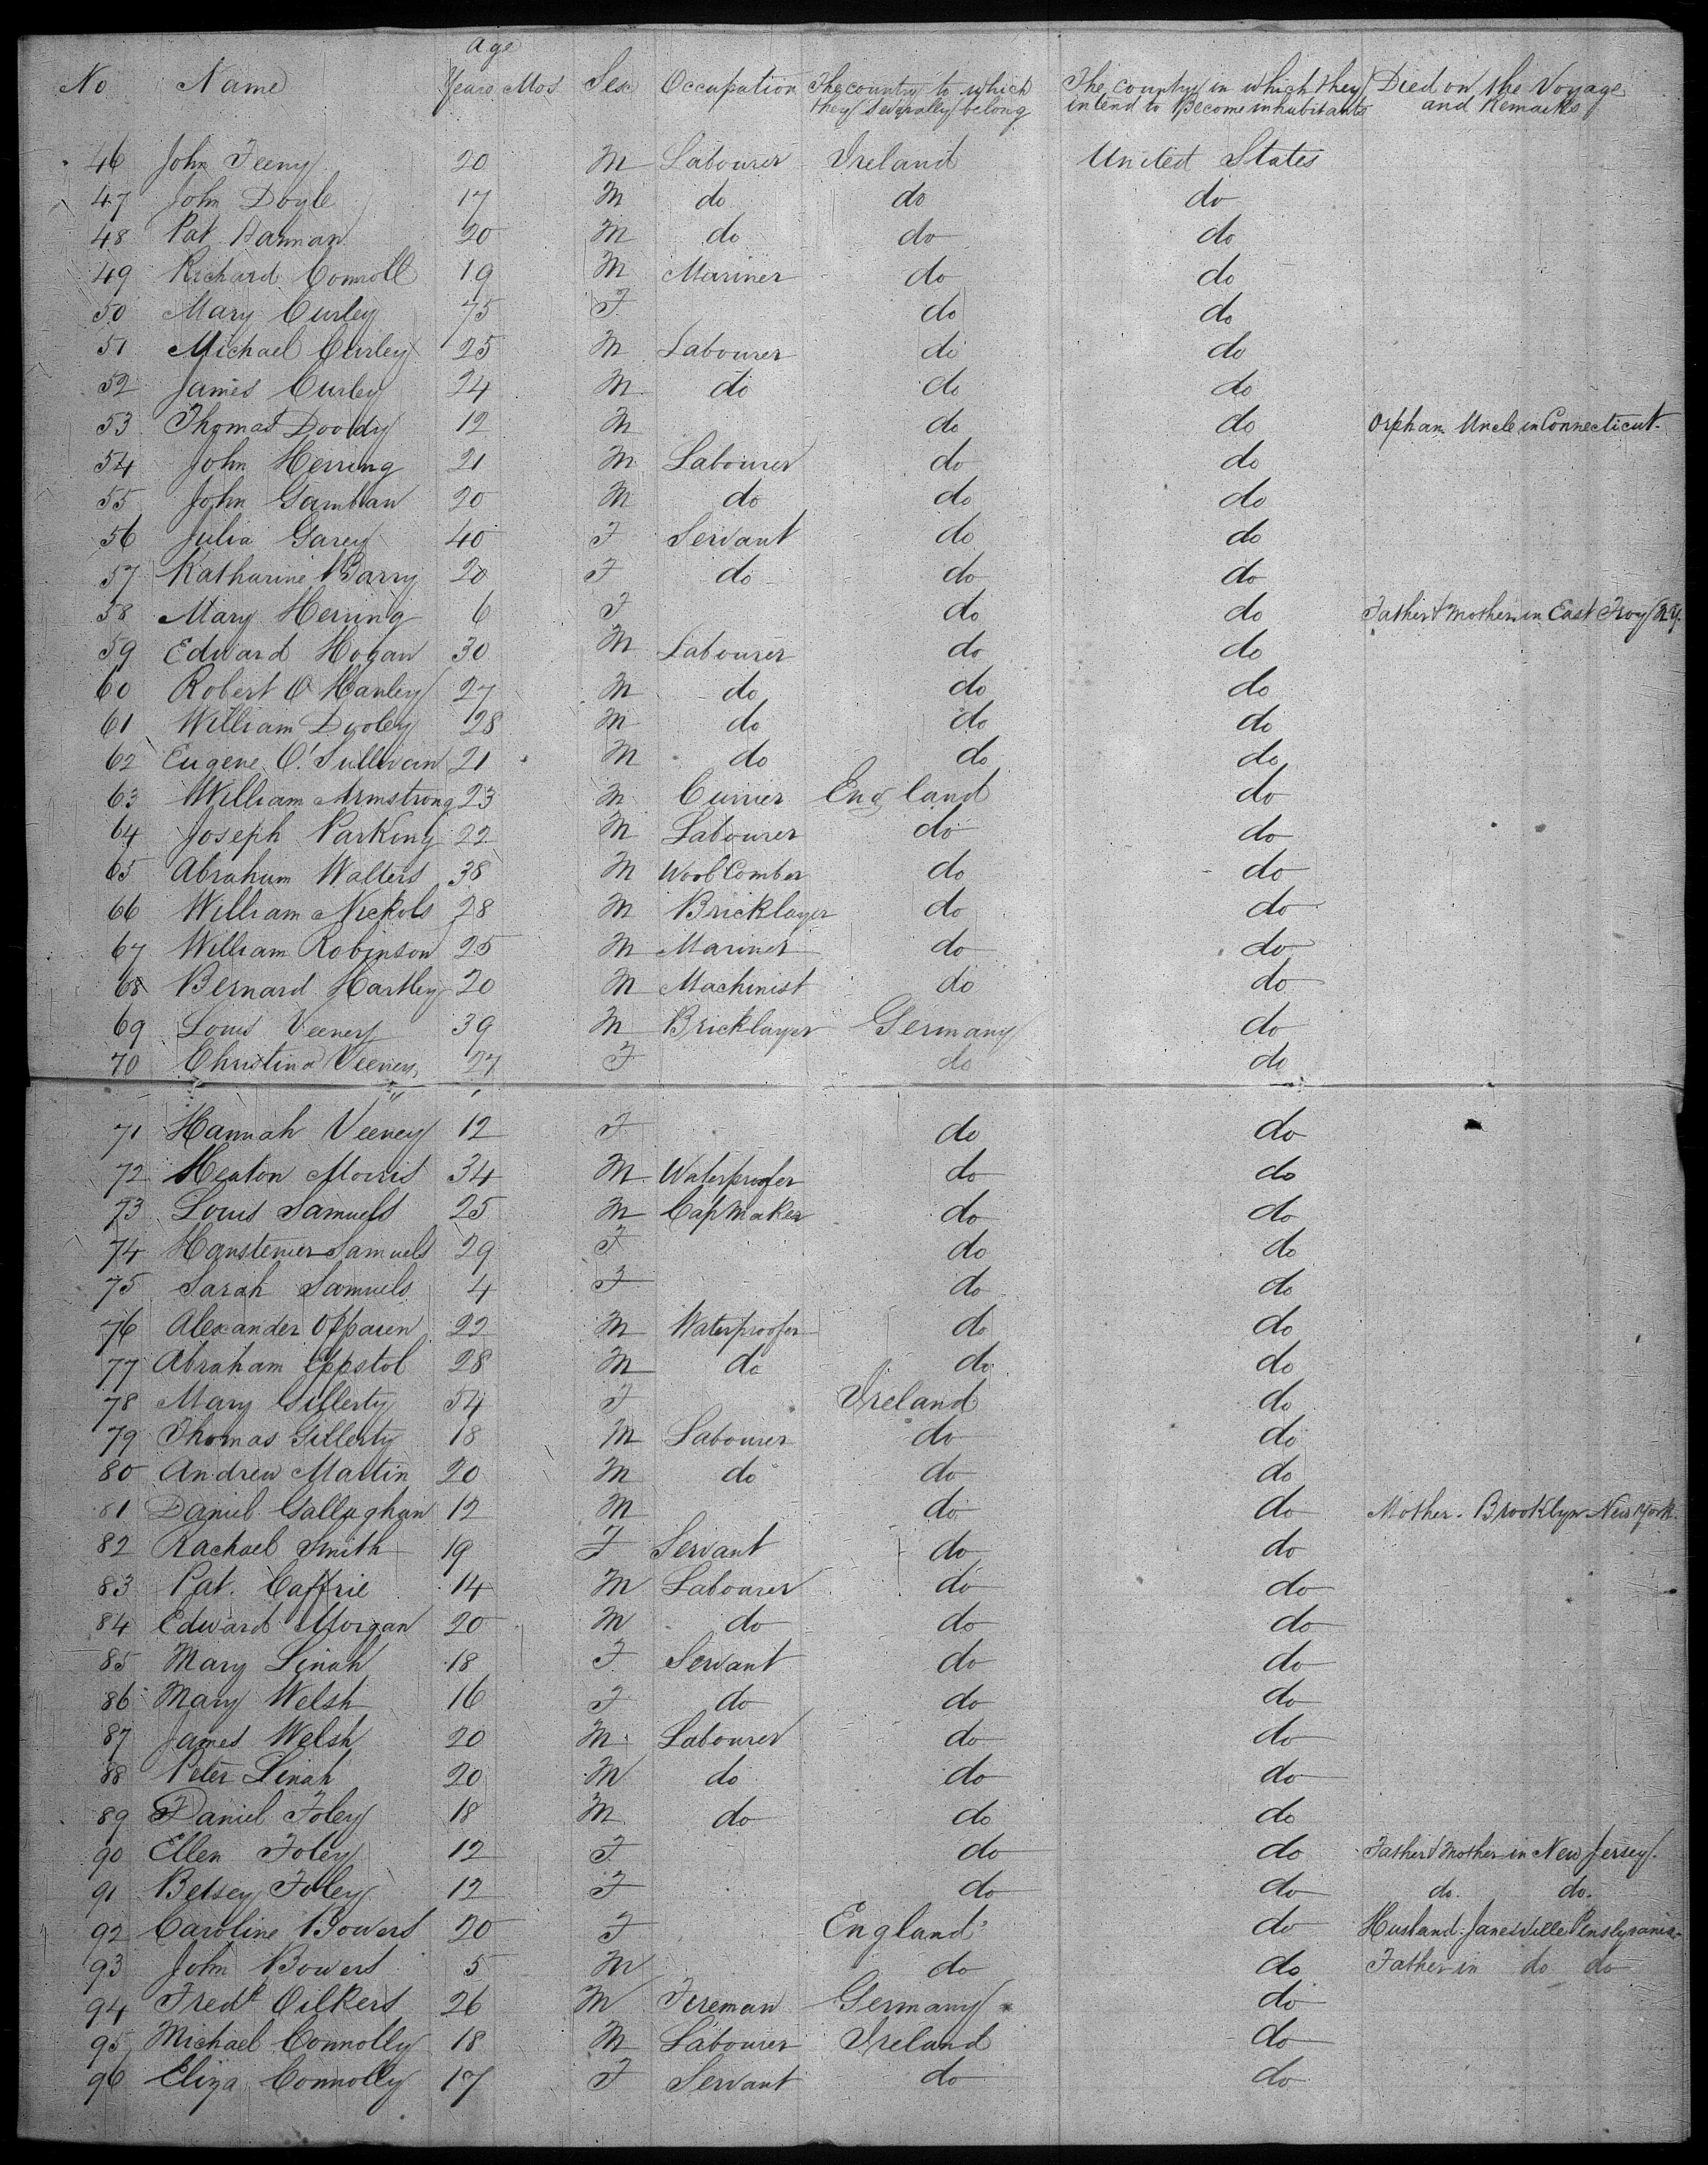 Age
No Name Years Mos Sex Occupation The country to which they severally belong The country in which they intend to become inhabitants Died on the Voyage and Remarks
46 John Feeny 20 M Labourer Ireland United States
47 John Doyle 17 M do do do
48 Pat Hannan 20 M do do do
49 Richard Connoll 19 M Mariner do do
50 Mary Curley 75 F do do
51 Michael Curley 25 M Labourer do do
52 James Curley 24 M do do do
53 Thomas Dooldy 12 M do do Orphan Uncle in Connecticut.
54 John Herring 21 M Labourer do do
55 John Gamblan 20 M do do do
56 Julia Garey 40 F Servant do do
57 Katharine Barry 20 F do do do
58 Mary Herring 6 F do do Father & Mother in East Troy N.Y.
59 Edward Hogan 30 M Labourer do do
60 Robert O Hanley 27 M do do do
61 William Dooley 28 M do do do
62 Eugene O'Sullivan 21 M do do do
63 William Armstrong 23 M Currier England do
64 Joseph Parking 22 M Labourer do do
65 Abraham Walters 38 M Wool Comber do do
66 William Nickols 28 M Bricklayer do do
67 William Robinson 25 M Mariner do do
68 Bernard Hartley 20 M Machinist do do
69 Louis Veeney 39 M Bricklayer Germany do
70 Christina Veeney 27 F do do
71 Hannah Veeney 12 F do do
72 Heaton Morris 34 M Waterproofer do do
73 Louis Samuels 25 M Cap Maker do do
74 Samuels 29 F do do
75 Sarah Samuels 4 F do do
76 Alexander 22 M Waterproofer do do
77 Abraham Eppstol 28 M do do do
78 Mary Gillerty 54 F Ireland do
79 Thomas Gillerty 18 M Labourer do do
80 Andrew Martin 20 M do do do
81 Daniel Gallaghan 12 M do do Mother. Brooklyn New York.
82 Rachael Smith 19 F Servant do do
83 Pat. Caffrie 14 M Labourer do do
84 Edward Morgan 20 M do do do
85 Mary Linah 18 F Servant do do
86 Mary Welsh 16 F do do do
87 James Welsh 20 M Labourer do do
88 Peter Linah 20 M do do do
89 Daniel Foley 18 M do do do
90 Ellen Foley 12 F do do Father & Mother in New Jersey.
91 Betsey Foley 12 F do do do. do.
92 Caroline Bowers 20 F England do Husband. Janesville Penslyvania
93 John Bowers 5 M do do Father in do do
94 Fredk Oilkers 26 M Fireman Germany do
95 Michael Connolly 18 M Labourer Ireland do
96 Eliza Connolly 17 F Servant do do